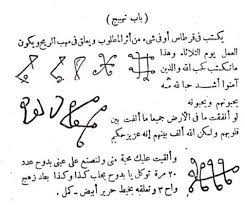 ( باب تهييج )
يكتب فى قرطاس أو فى شىء من أثر المطلوب ويعلق فى مهب الريح ويكون
العمل يوم الثلاثاء وهذا
ما تكتب كحب الله والذين
آمنوا أشد حبا لله
يحبونهم ويحبونه
لو أنفقت ما فى الأرض جميعا ما ألفت بين
قلوبهم ولكن الله ألف بينهم إنه عزيز حكيم
وألقيت عليك محبة منى ولتصنع على عينى بدوح عدد
٢٠ مرة توكل يا بدوح بحجاب كذا وكذا بعد زهيج
واح ٣ وتعلقه بخيط حرير أبيض . كمل .